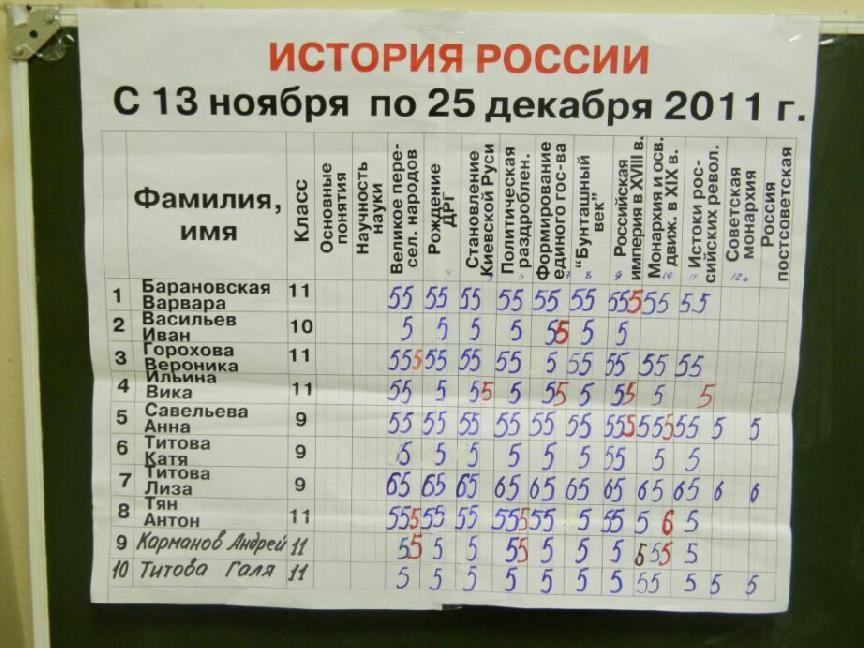 ИСТОРИЯ РОССИИ
С 13 ноября по 25 декабря 2011 г.
Фамилия, имя
Класс
Основные понятия
Научность науки
Великое пере-
сел. народов
Рождение ДРГ
Становление Киевской Руси
Политическая раздроблен.
Формирование единого гос-ва
"Бунташный век"
Российская империя в XVIII в.
Монархия и осв. движ. в XIX в.
Истоки рос-
сийских револ.
Советская монархия
Россия постсоветская
1 Барановская Варвара 11 55 55 55 55 55 55 555 55 55
2 Васильев Иван 10 5 5 5 5 55 5 5
3 Горохова Вероника 11 555 55 55 55 5 55 55 55 55
4 Ильина Вика 11 55 5 55 5 55 5 55 5 5
5 Савельева Анна 9 55 55 55 55 55 55 555 555 55 5 5
6 Титова Катя 9 5 5 5 5 5 5 55 5 5
7 Титова Лиза 9 65 65 65 65 65 65 65 65 65 6 6
8 Тян Антон 11 555 55 55 555 55 5 55 5 6 5
9 Карманов Андрей 11 55 5 5 55 5 5 5 555 5
10 Титова Галя 11 5 5 5 5 5 5 5 55 5 5 5